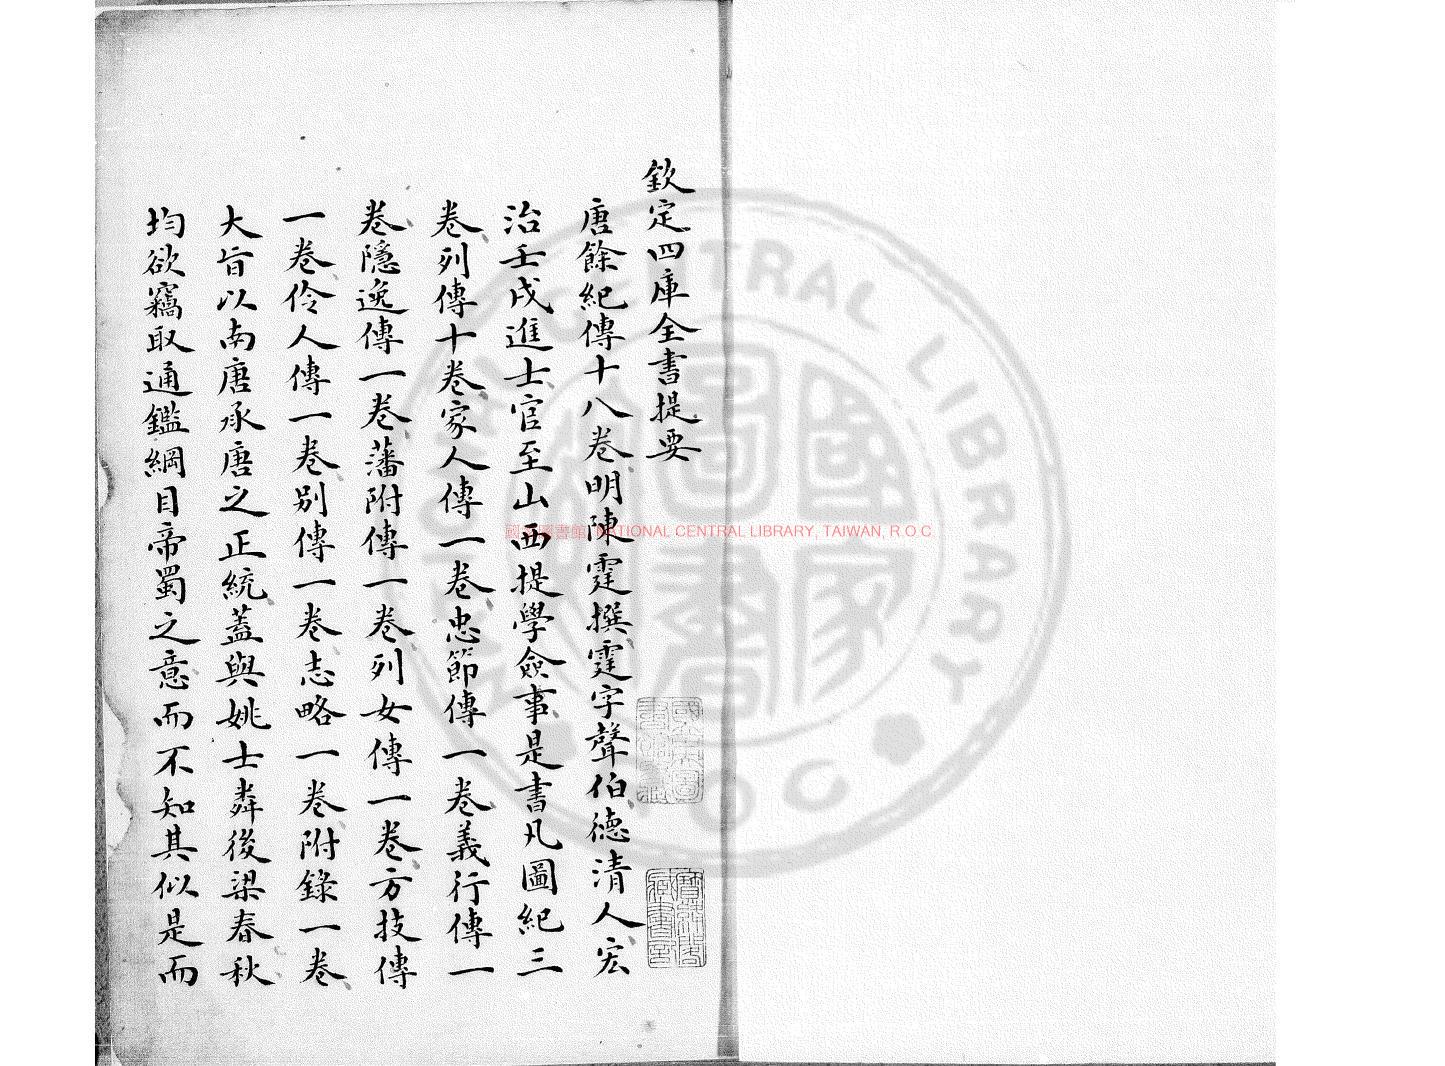 欽定四庫全書提要
唐餘紀傳十八卷明陳霆撰霆字聲伯德清人宏
治壬戌進士官至山西提學僉事是書凡圖紀三
卷列傳十卷家人傳一卷忠節傳一卷義行傳一
卷隱逸傳一卷藩附傳一卷列女傳一卷方技傳
一卷伶人傳一卷別傳一卷志略一卷附錄一卷
大旨以南唐承唐之正統蓋與姚士粦後梁春秋
均欲竊取通鑑綱目帝蜀之意而不知其似是而
國家圖書館, NATIONAL CENTRAL LIBRARY, TAIWAN, R.O.C
國家圖書
CENTRAL LIBRARY